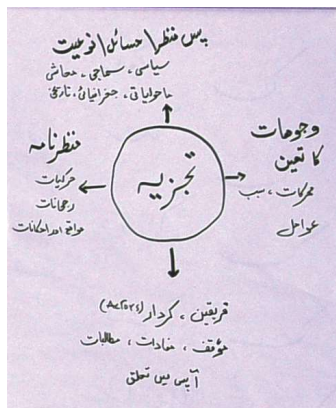 پس منظر / مسائل / نوعیت
سیاسی، سماجی، معاشی
ماحولیاتی، جغرافیائی، تاریخی
وجوہات
کا تعین
محرکات، سبب
عوامل
منظرنامہ
حرکیات
رجحانات
مواقع اور امکانات
تجزیہ
فریقین، کردار
مؤقف، مفادات، مطالبات
آپس میں تعلق